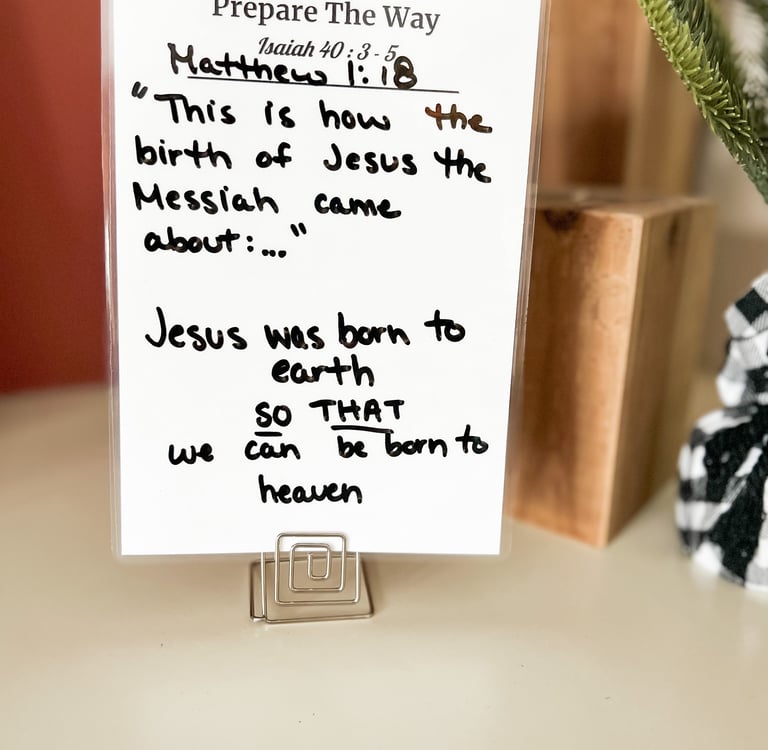 Prepare The Way
Isaiah 40:3-5
Matthew 1:18
"This is how the
birth of Jesus the
Messiah came
about:..."
Jesus was born to
earth
SO THAT
we can be born to
heaven